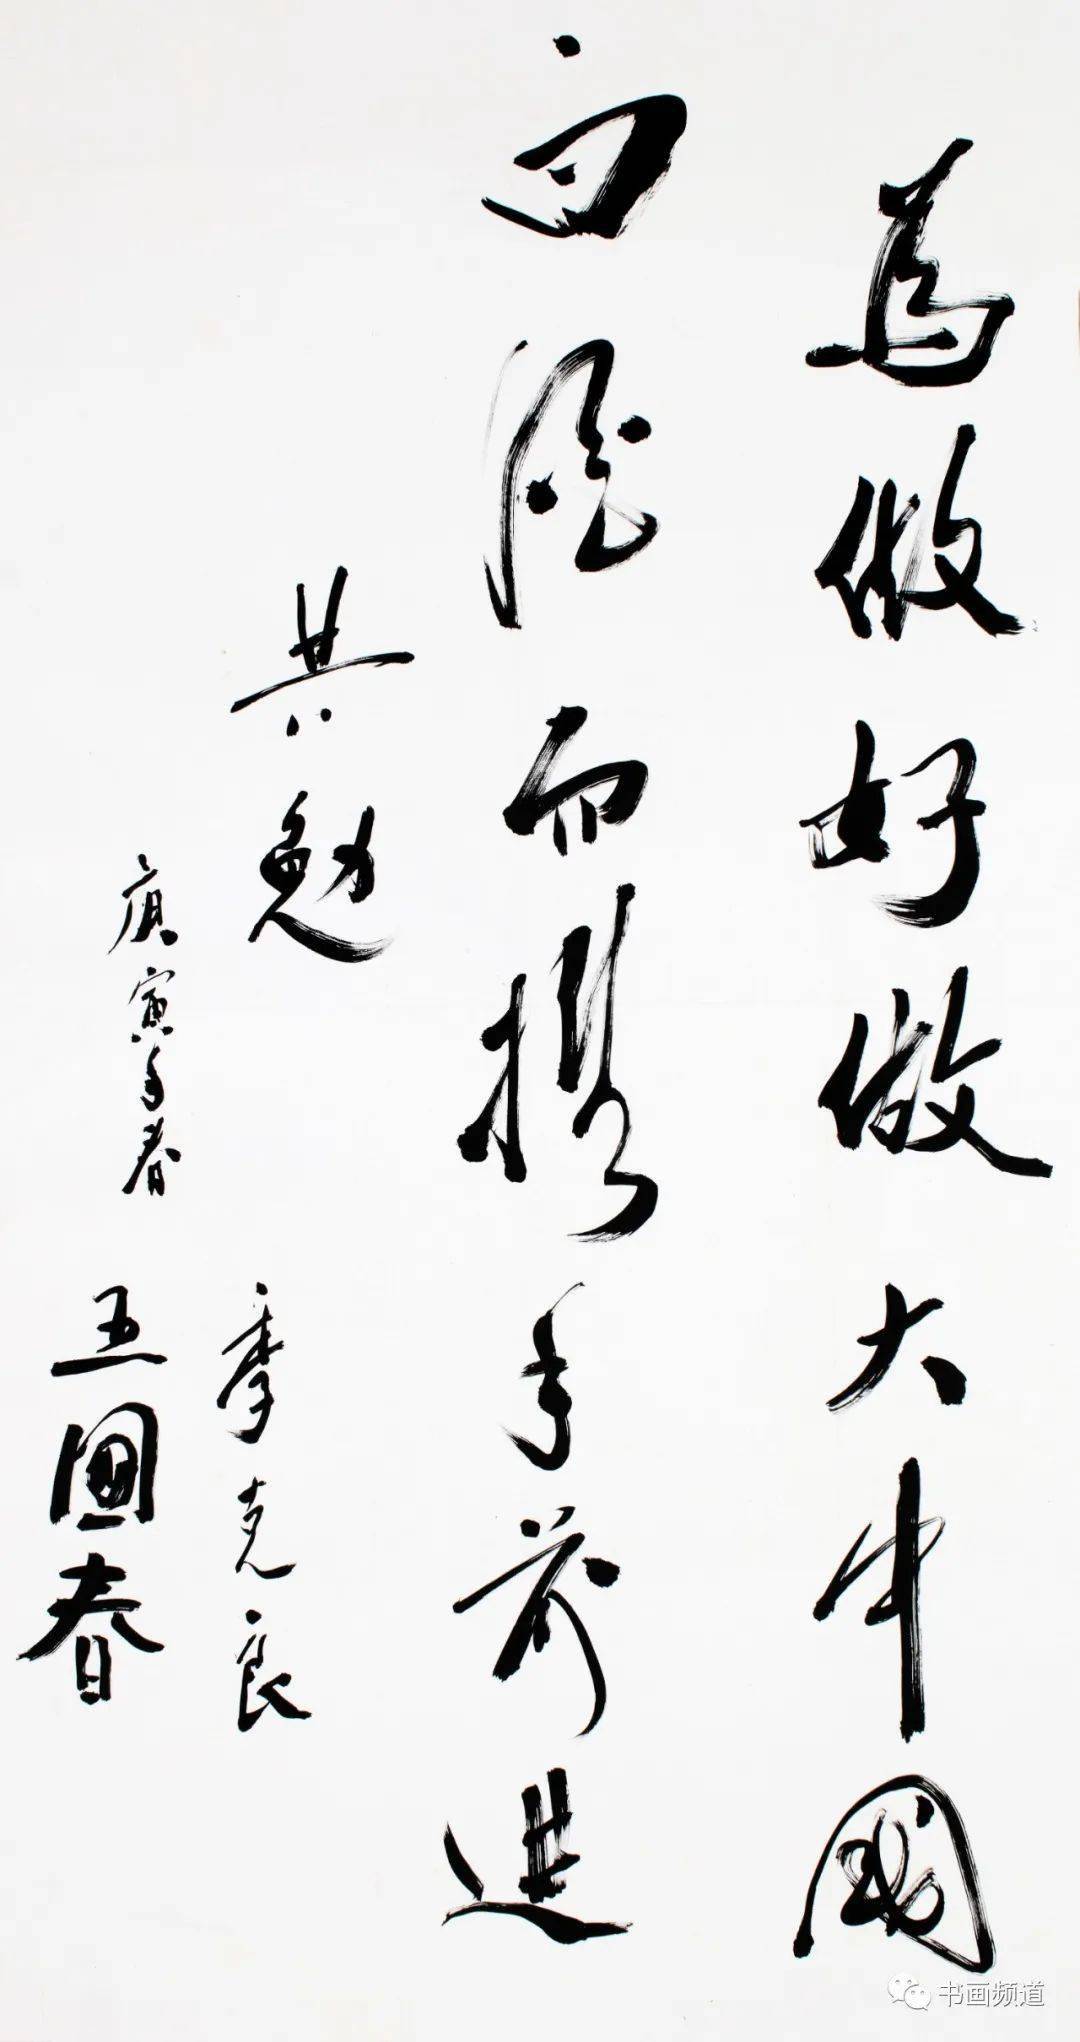 為做好做大中國
白酒而携手前進
共勉
季克良
庚寅年春
王國春
书画频道